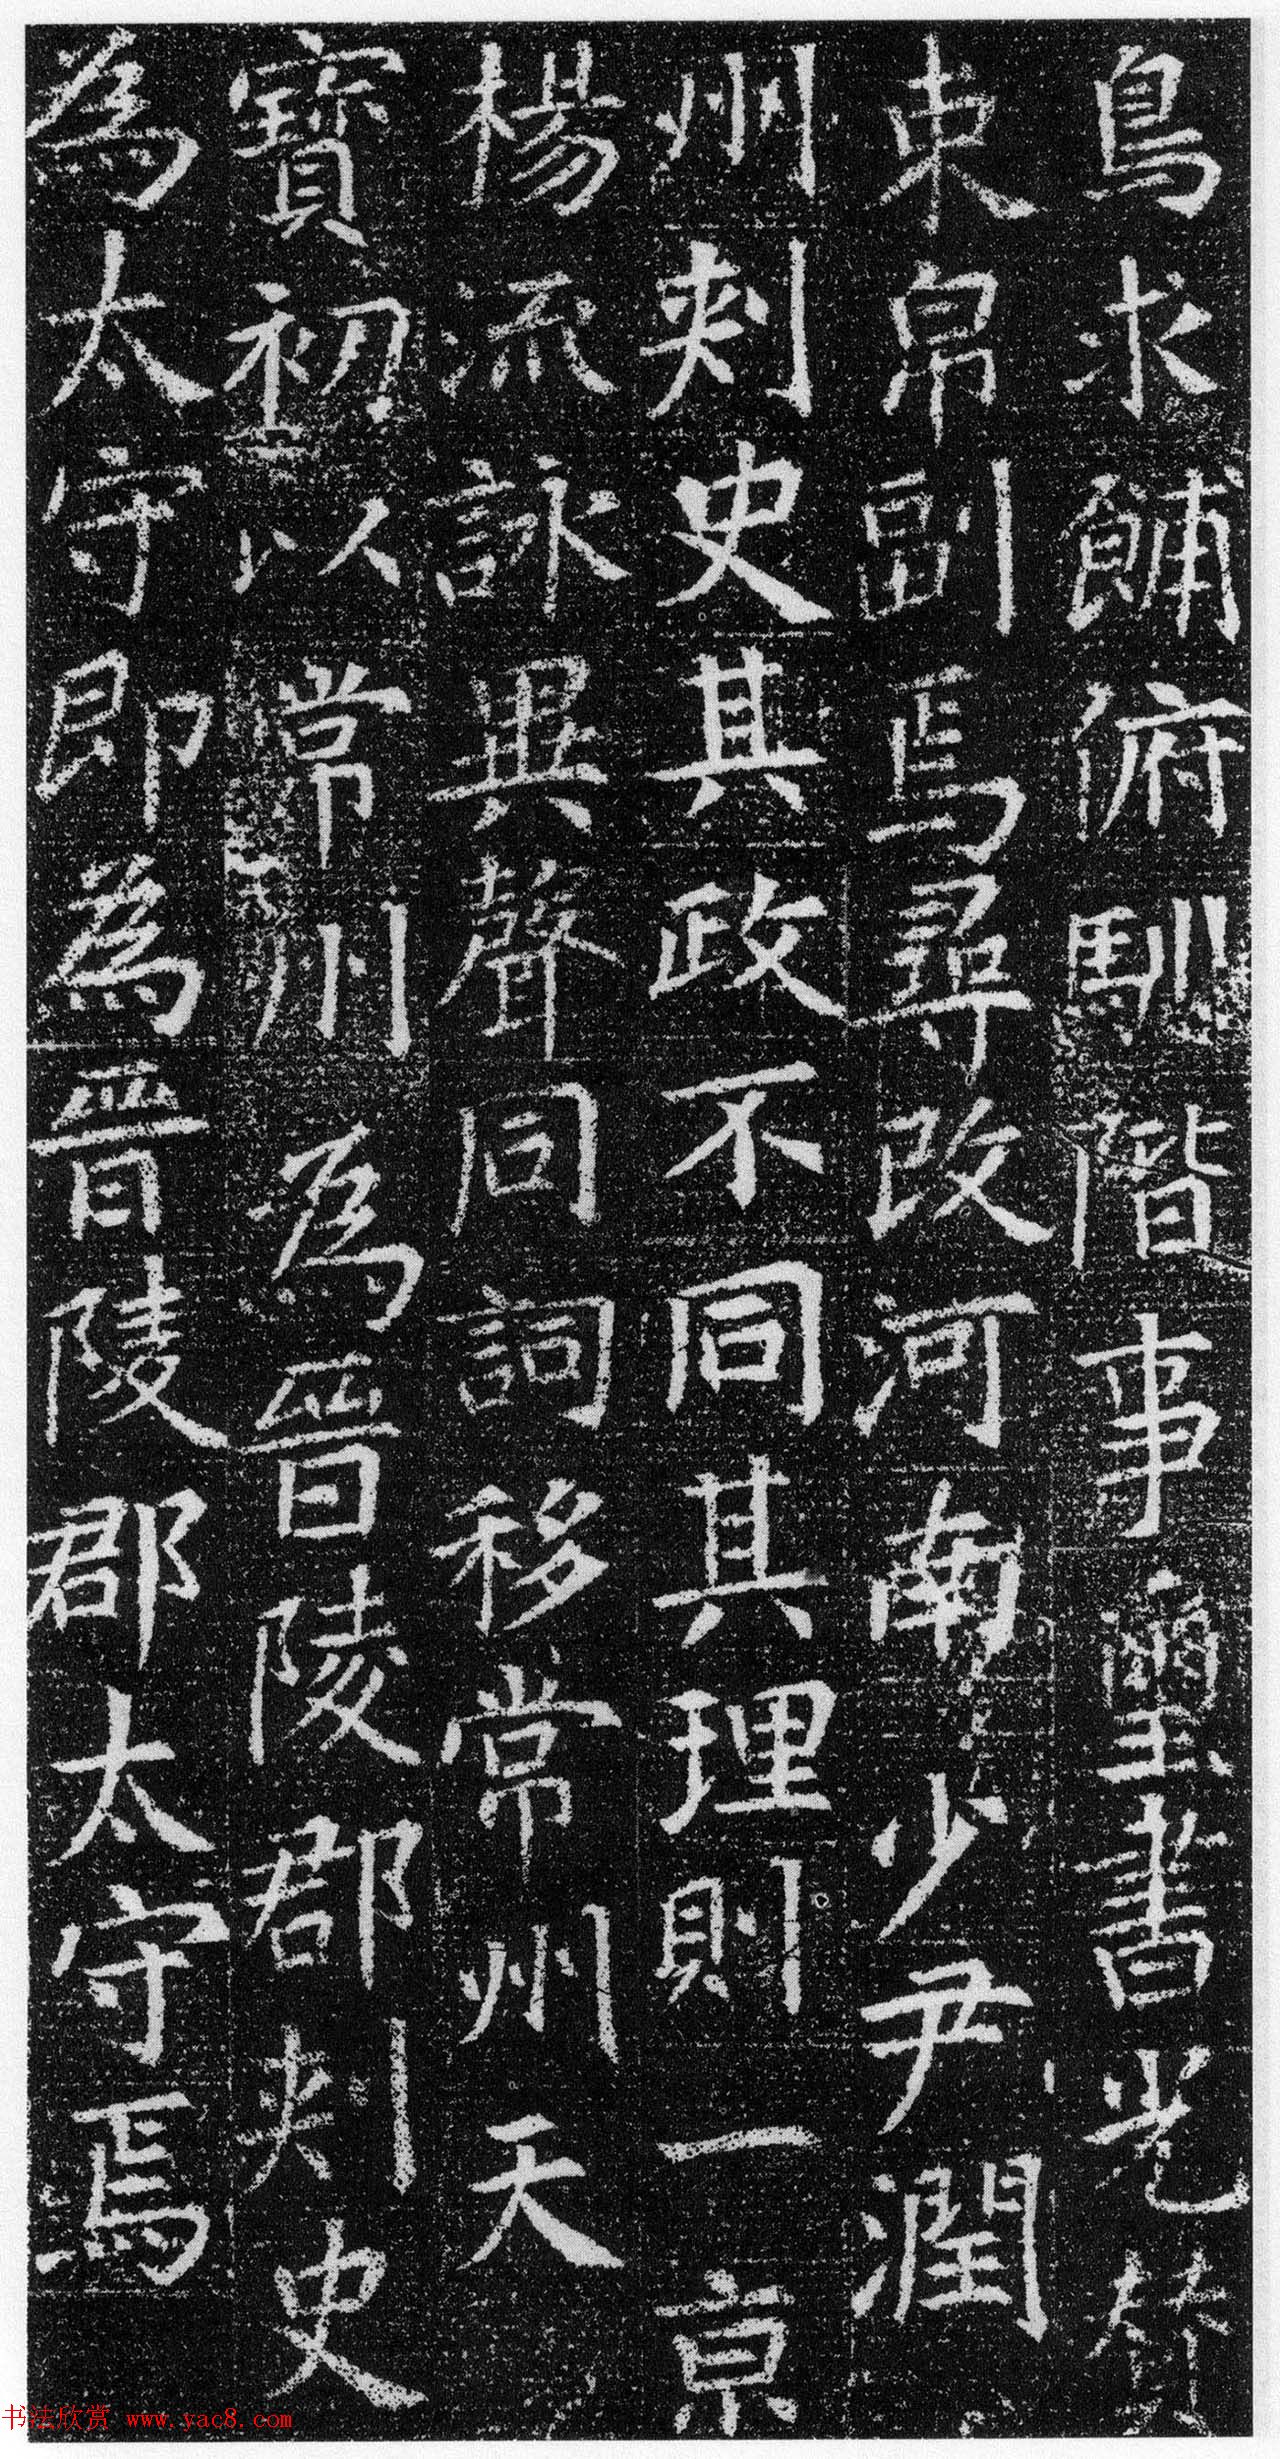 鳥求餔俯馴階事璽書光賛
束帛副焉尋改河南少尹潤
州刾史其政不同其理則一京
楊流詠異聲同詞移常州天
寶初以常州為晉陵郡刾史
為太守即為晉陵郡太守焉
书法欣赏 www.yac8.com